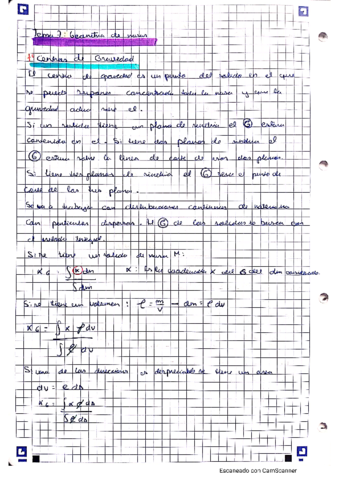 Tema 7: Geometría de masas
1- Centros de Gravedad
El centro de gravedad es un punto del solido en el que
se puede suponer concentrada toda la masa y que la
gravedad actua sobre el.
Si un solido tiene un plano de simetria el G estara
contenido en el. Si tiene dos planos de simetria el
G estara sobre la linea de corte de esos dos planos.
Si tiene tres planos de simetria el G sera el punto de
corte de los tres planos.
Se va a trabajar con distribuciones continuas de
con particulas dispersas. El G de los solidos se busca con
el metodo integral.
Si se tiene un solido de masa M:
x_G = ∫ x dm / ∫ dm x: es la coordenada x del G del dm
Si se tiene un volumen: ρ = m/v → dm = ρ dv
x_G = ∫ x ρ dv / ∫ ρ dv
Si una de las direcciones es despreciable se tiene un area
dv = e ds
x_G = ∫ x ρ ds / ∫ ρ ds
Escaneado con CamScanner